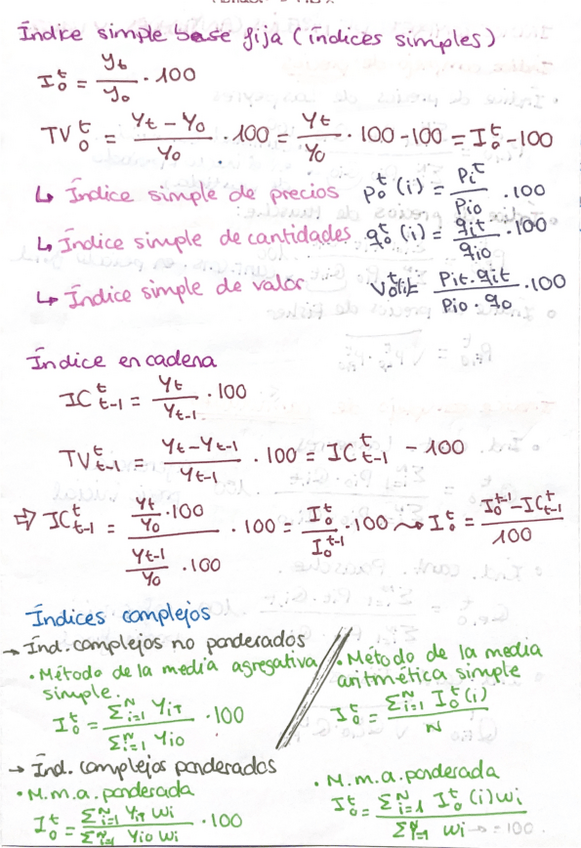 Índice simple base fija (índices simples)
I₀ᵗ = yₜ / y₀ · 100
TV₀ᵗ = (Yₜ − Y₀) / Y₀ · 100 = Yₜ / Y₀ · 100 - 100 = I₀ᵗ - 100
↳ Índice simple de precios p₀ᵗ(i) = Piᵗ / Pi₀ · 100
↳ Índice simple de cantidades q₀ᵗ(i) = qit / qi₀ · 100
↳ Índice simple de valor Pit · qit / Pi₀ · q₀ · 100
Índice en cadena
IC ᵗ ₜ₋₁ = Yₜ / Yₜ₋₁ · 100
TV ᵗ ₜ₋₁ = (Yₜ − Yₜ₋₁) / Yₜ₋₁ · 100 = IC ᵗ ₜ₋₁ - 100
⇨ IC ᵗ ₜ₋₁ = (Yₜ / Y₀ · 100) / (Yₜ₋₁ / Y₀ · 100) · 100 = I₀ᵗ / I₀ᵗ⁻¹ · 100 ⤳ I₀ᵗ = (I₀ᵗ⁻¹ - IC ᵗ ₜ₋₁) / 100
Índices complejos
→ Índ. complejos no ponderados
· Método de la media agregativa
simple.
I₀ᵗ = Σᵢ₌₁ᴺ Yiт / Σᵢ₌₁ᴺ Yi₀ · 100
· Método de la media
aritmética simple
I₀ᵗ = Σᵢ₌₁ᴺ I₀ᵗ(i) / N
→ Índ. complejos ponderados
· M.m.a. ponderada
I₀ᵗ = Σᵢ₌₁ᴺ Yiт wi / Σᵢ₌₁ᴺ Yi₀ wi · 100
· M.m.a. ponderada
I₀ᵗ = Σᵢ₌₁ᴺ I₀ᵗ(i) wi / Σᵢ₌₁ᴺ wi → = 100.